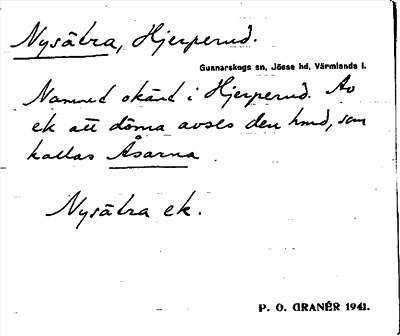 Nysätra, Hjerperud.
Gunnarskogs sn, Jösse hd, Värmlands l.
Namnet okänt i Hjerperud. Av
ek att döma avses den hmd, som
kallas Åsarna
Nysätra ek.
P. O. GRANÉR 1941.